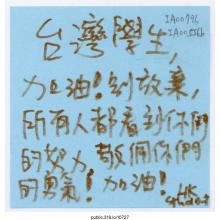 IA00796
IA00556b
台灣學生,
加油!別放棄,
所有人都看到你們
的努力 敬佩你們
的勇氣! 加油!
HK
student
public.318.io/10727